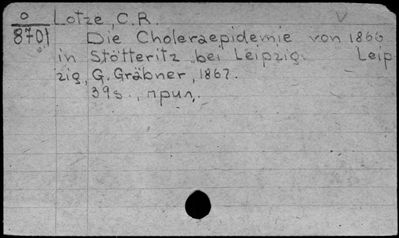 O Lotze, C.R. V
8701 Die Choleraepidemie von 1866
in Stötteritz bei Leipzig. Leip
zig, G. Gräbner, 1867.
39s., прил.